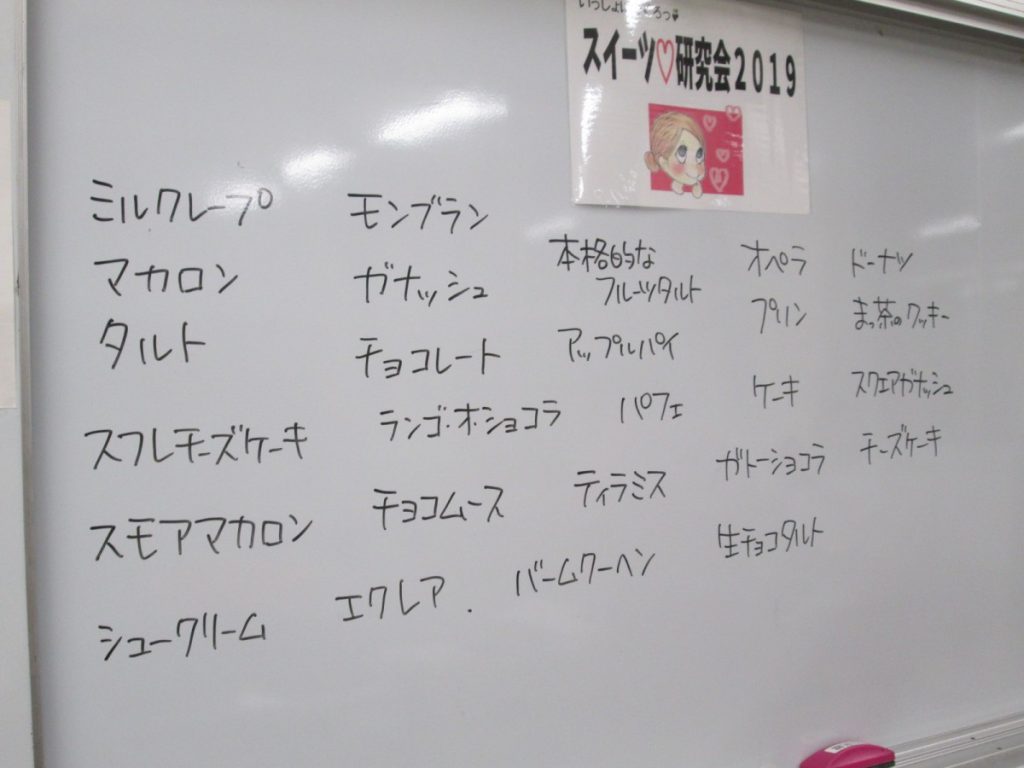 スイーツ♡研究会2019
ミルクレープ
マカロン
タルト
スフレチーズケーキ
スモアマカロン
シュークリーム
モンブラン
ガナッシュ
チョコレート
ランゴ・オ・ショコラ
チョコムース
エクレア.
本格的な
フルーツタルト
アップルパイ
パフェ
ティラミス
バームクーヘン
オペラ
プリン
ケーキ
ガトーショコラ
生チョコタルト
ドーナツ
まっ茶のクッキー
スクエアガナッシュ
チーズケーキ